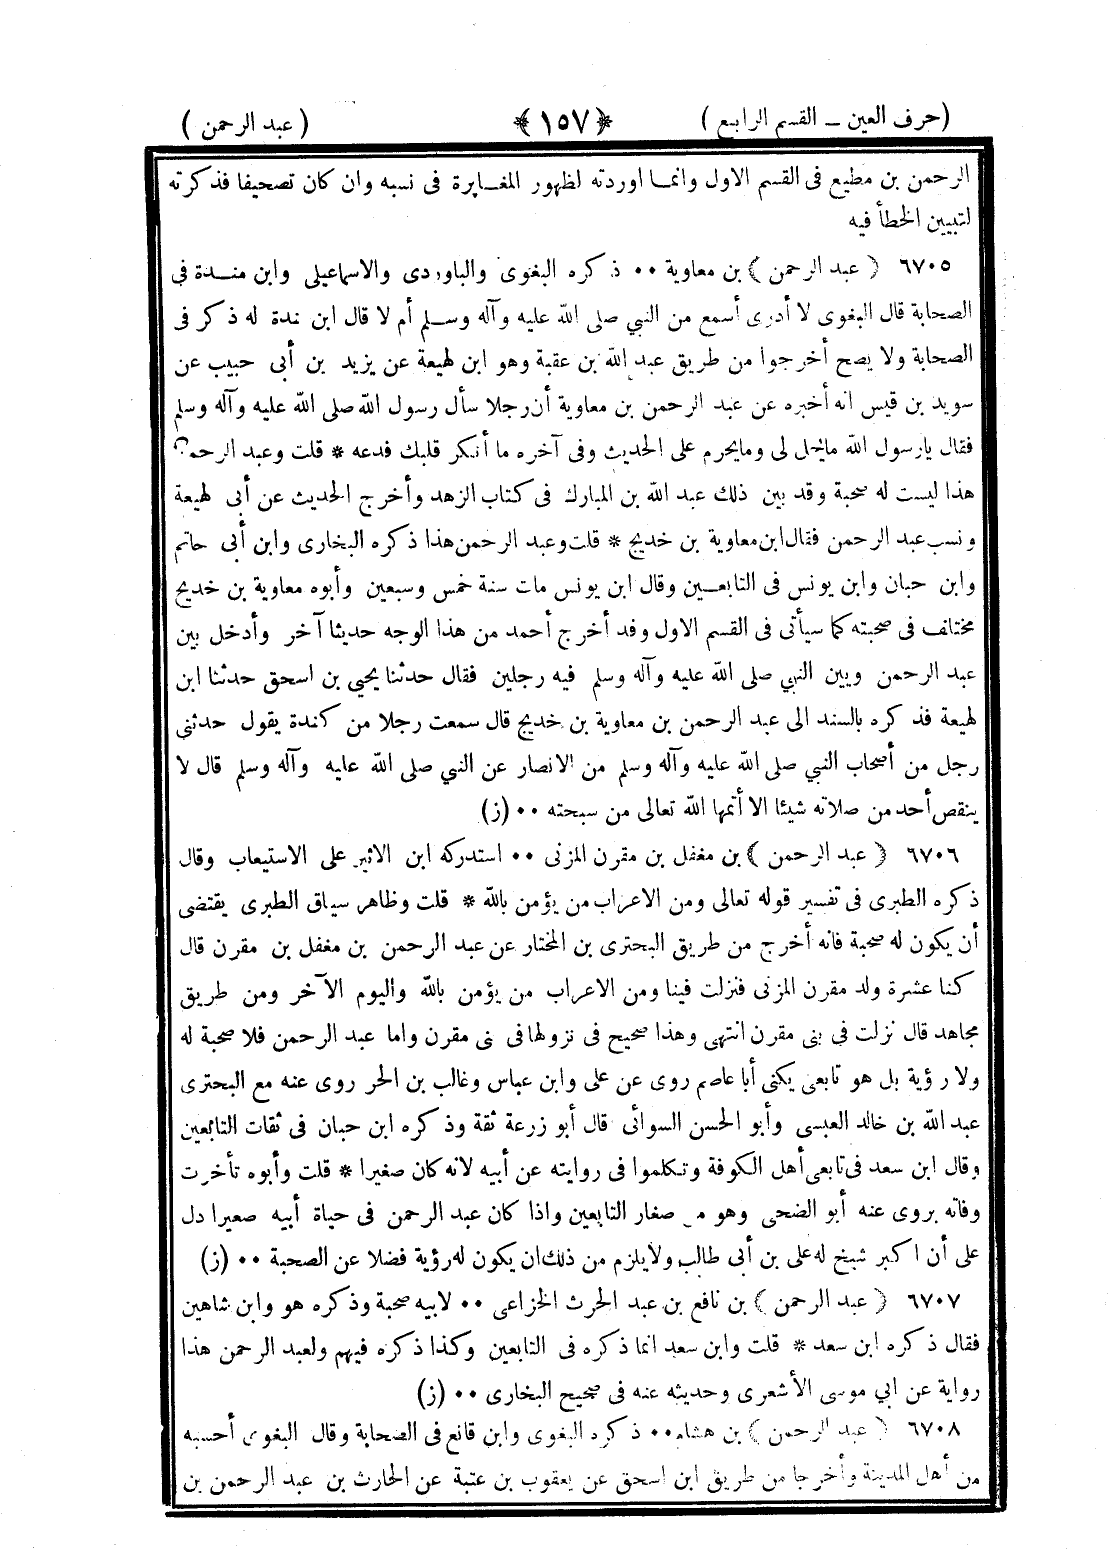 (حرف العين ــ القسم الرابع) ﴿١٥٧﴾ (عبد الرحمن)
الرحمن بن مطيع فى القسم الاول وانمـا اوردته لظهور المغـايرة فى نسبه وان كان تصحيفا فذكرته
لتبيين الخطأ فيه
٦٧٠٥ (عبد الرحمن) بن معاوية ٠٠ ذكره البغوى والباوردى والاسماعيلى وابن منـدة فى
الصحابة قال البغوى لا أدرى أسمع من النبي صلى الله عليه وآله وسـلم أم لا قال ابن ندة له ذكر فى
الصحابة ولا يصح أخرجوا من طريق عبد الله بن عقبة وهو ابن لهيعة عن يزيد بن أبى حبيب عن
سويد بن قيس انه أخبره عن عبد الرحمن بن معاوية أن رجلا سأل رسول الله صلى الله عليه وآله وسلم
فقال يارسول الله مايحل لى ومايحرم على الحديث وفى آخره ما أنكر قلبك فدعه * قلت وعبد الرحمن
هذا ليست له صحبة وقد بين ذلك عبد الله بن المبارك فى كتاب الزهد وأخرج الحديث عن أبى لهيعة
ونسب عبد الرحمن فقال ابن معاوية بن خديج * قلت وعبد الرحمن هذا ذكره البخارى وابن أبى حاتم
وابن حبان وابن يونس فى التابعـين وقال ابن يونس مات سنة خمس وسبعين وأبوه معاوية بن خديج
مختلف فى صحبته كما سيأتى فى القسم الاول وقد أخرج أحمد من هذا الوجه حديثا آخر وأدخل بين
عبد الرحمن وبين النبي صلى الله عليه وآله وسلم فيه رجلين فقال حدثنا يحيي بن اسحق حدثنا ابن
لهيعة فذكره بالسند الى عبد الرحمن بن معاوية بن خديج قال سمعت رجلا من كندة يقول حدثنى
رجل من أصحاب النبي صلى الله عليه وآله وسلم من الانصار عن النبي صلى الله عليه وآله وسلم قال لا
ينقص أحد من صلاته شيئا الا أتمها الله تعالى من سبحته ٠٠ (ز)
٦٧٠٦ (عبد الرحمن) بن مغفل بن مقرن المزنى ٠٠ استدركه ابن الاثير على الاستيعاب وقال
ذكره الطبرى فى تفسير قوله تعالى ومن الاعراب من يؤمن بالله * قلت وظاهر سياق الطبرى يقتضى
أن يكون له صحبة فانه أخرج من طريق البحترى بن المختار عن عبد الرحمن بن مغفل بن مقرن قال
كنا عشرة ولد مقرن المزنى فنزلت فينا ومن الاعراب من يؤمن بالله واليوم الآخر ومن طريق
مجاهد قال نزلت في بنى مقرن انتهى وهذا صحيح فى نزولها فى نى مقرن واما عبد الرحمن فلا صحبة له
ولا رؤية بل هو تابعى يكنى أبا عاصم روى عن على وابن عباس وغالب بن الحر روى عنه مع البحترى
عبد الله بن خالد العبسى وأبو الحسن السوائى قال أبو زرعة ثقة وذكره ابن حبان فى ثقات التابعين
وقال ابن سعد فى تابعى أهل الكوفة وتكلموا فى روايته عن أبيه لانه كان صغيرا * قلت وأبوه تأخرت
وفاته يروى عنه أبو الضحى وهو من صغار التابعين واذا كان عبد الرحمن فى حياة أبيه صغيرا دل
على أن اكبر شيخ له على بن أبى طالب ولايلزم من ذلك ان يكون له رؤية فضلا عن الصحبة ٠٠ (ز)
٦٧٠٧ (عبد الرحمن) بن نافع بن عبد الحرث الخزاعى ٠٠ لابيه صحبة وذكره هو وابن شاهين
فقال ذكره ابن سعد * قلت وابن سعد انما ذكره فى التابعين وكذا ذكره فيهم ولعبد الرحمن هذا
رواية عن ابي موسى الأشعرى وحديثه عنه فى صحيح البخارى ٠٠ (ز)
٦٧٠٨ (عبد الرحمن) بن هشام ٠٠ ذكره البغوى وابن قانع فى الصحابة وقال البغوى أحسبه
من أهل المدينة وأخرجا من طريق ابن اسحق عن يعقوب بن عتبة عن الحارث بن عبد الرحمن بن